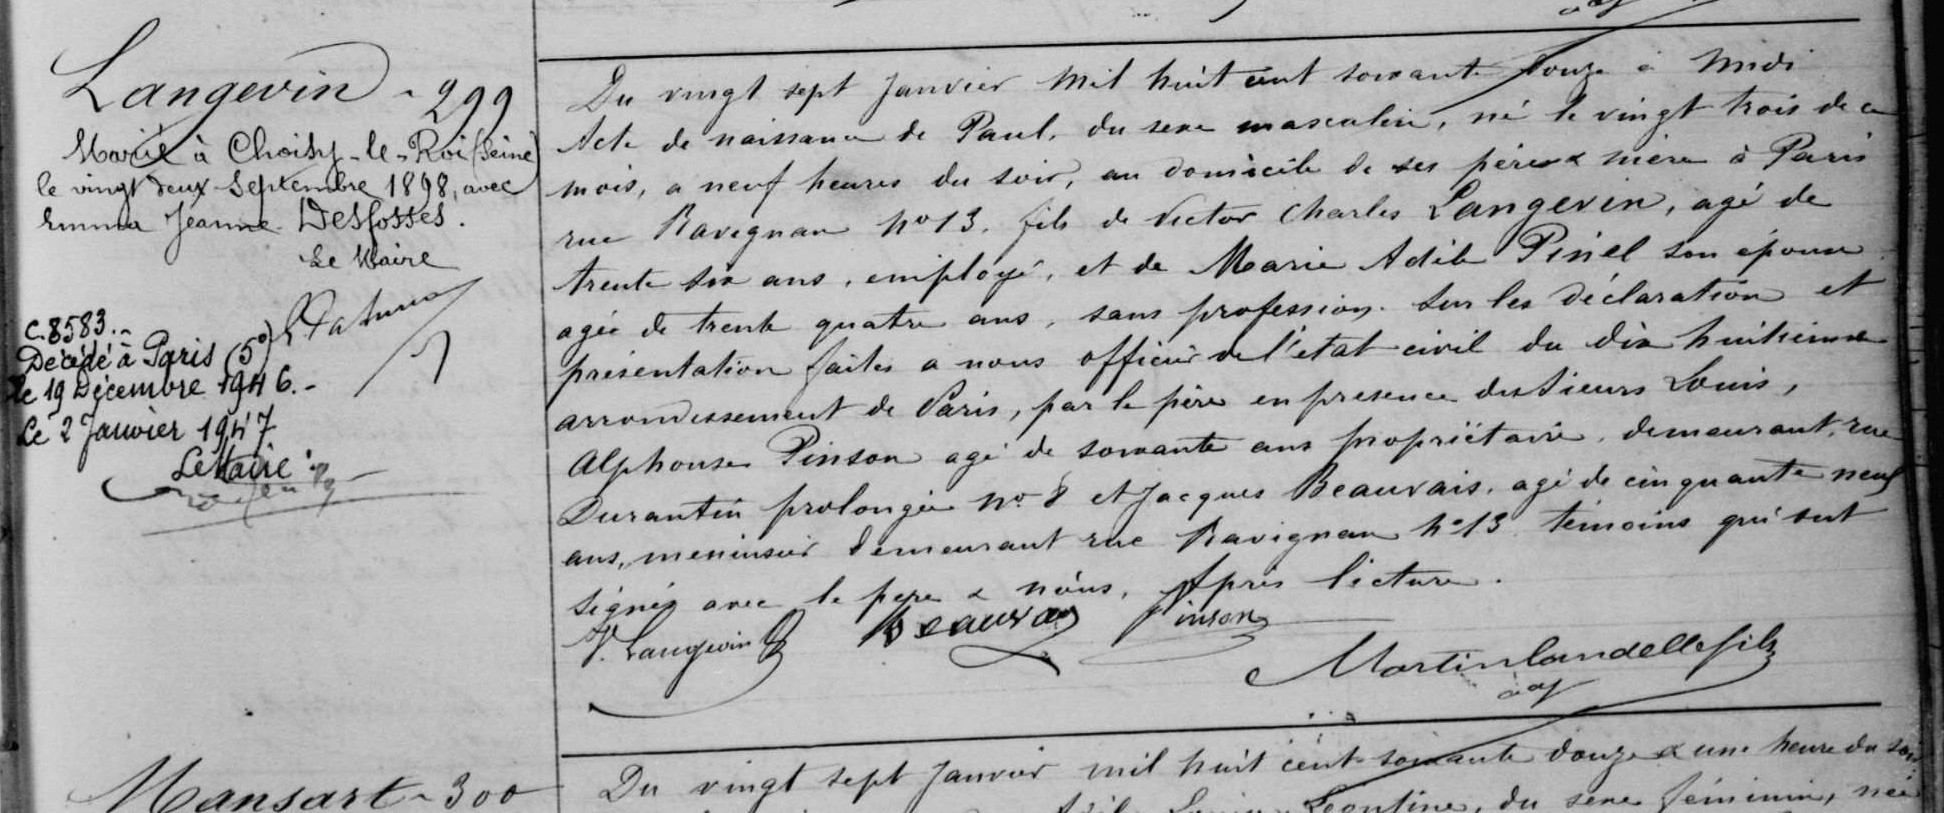 Langevin - 299
Marié à Choisy-le-Roi (Seine)
le vingt deux Septembre 1898, avec
Emma Jeanne Desfosses.
Le Maire
C. 8583.-
Décédé à Paris (5e)
le 19 Décembre 1946.-
Le 2 Janvier 1947
Le Maire
Du vingt sept Janvier mil huit cent soixante douze à midi
Acte de naissance de Paul, du sexe masculin, né le vingt trois de ce
mois, a neuf heures du soir, au domicile de ses père & mère à Paris
rue Ravignan No 13. fils de Victor Charles Langevin, agé de
trente six ans, employé, et de Marie Adèle Pinel son épouse
agée de trente quatre ans, sans profession. Sur les déclaration et
présentation faites a nous officier de l'état civil du dix huitième
arrondissement de Paris, par le père en presence des sieurs Louis,
Alphonse Pinson agé de soixante ans propriétaire, demeurant, rue
Durantin prolongée No 8 et Jacques Beauvais, agé de cinquante neuf
ans, menuisier demeurant rue Ravignan No 13 témoins qui ont
signés avec le père & nous, Après lecture.
V. Langevin Beauvais Pinson
Martin Landelle fils
Mansart - 300
Du vingt sept Janvier mil huit cent soixante douze à une heure du soir
Léontine, du sexe féminin, née